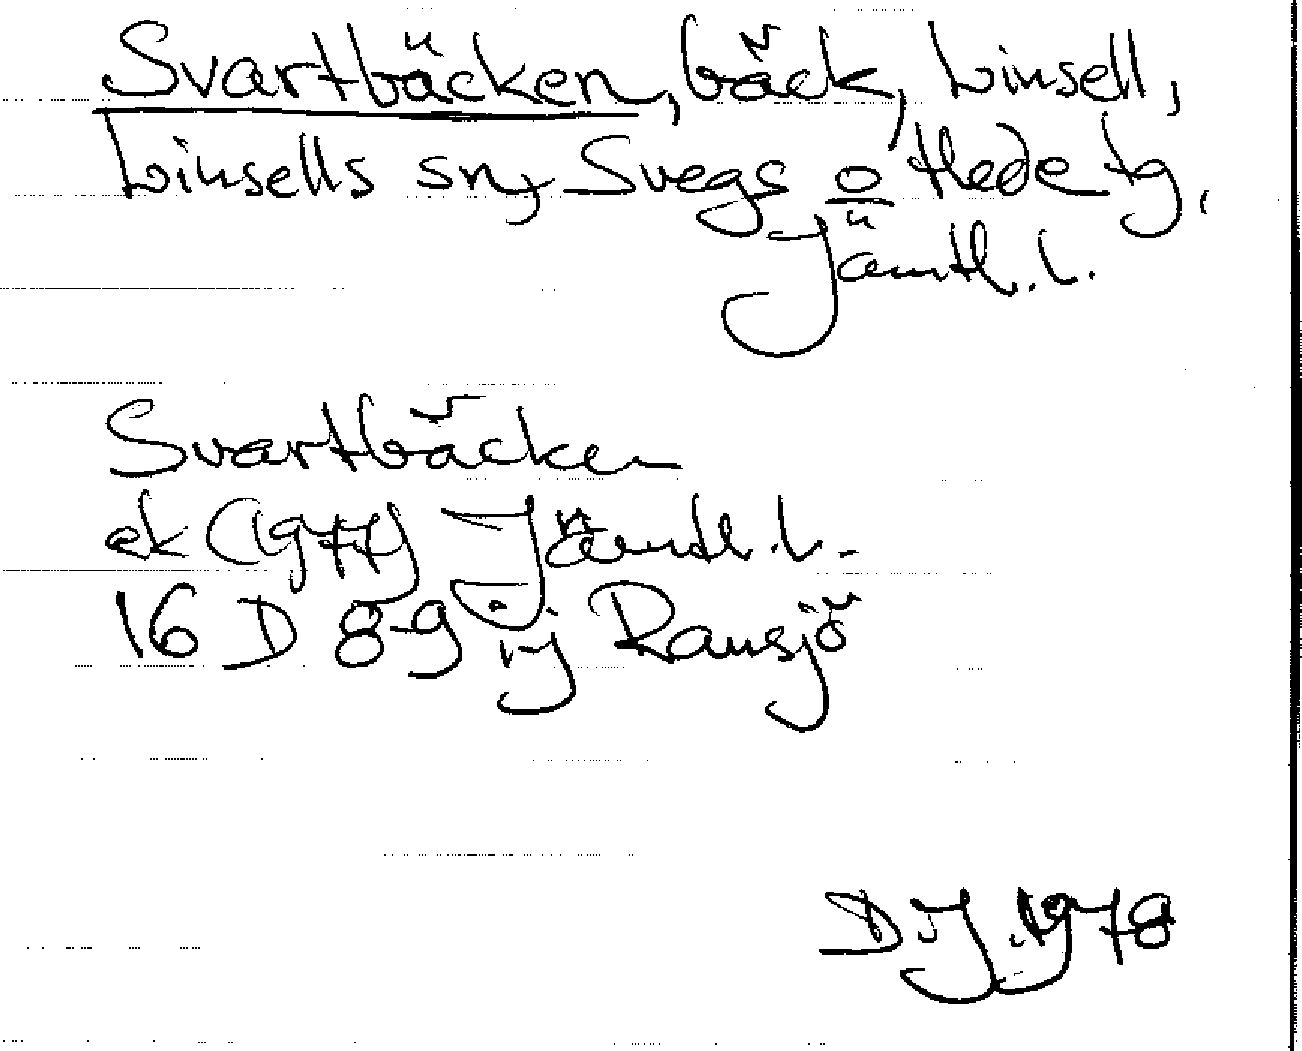 Svartbäcken, bäck, Linsell,
Linsells sn, Svegs o Hede tg,
Jämtl. l.
Svartbäcken
ek (1977) Jämtl. l.
16 D 8-9 ij Ransjö
D.J. 1978